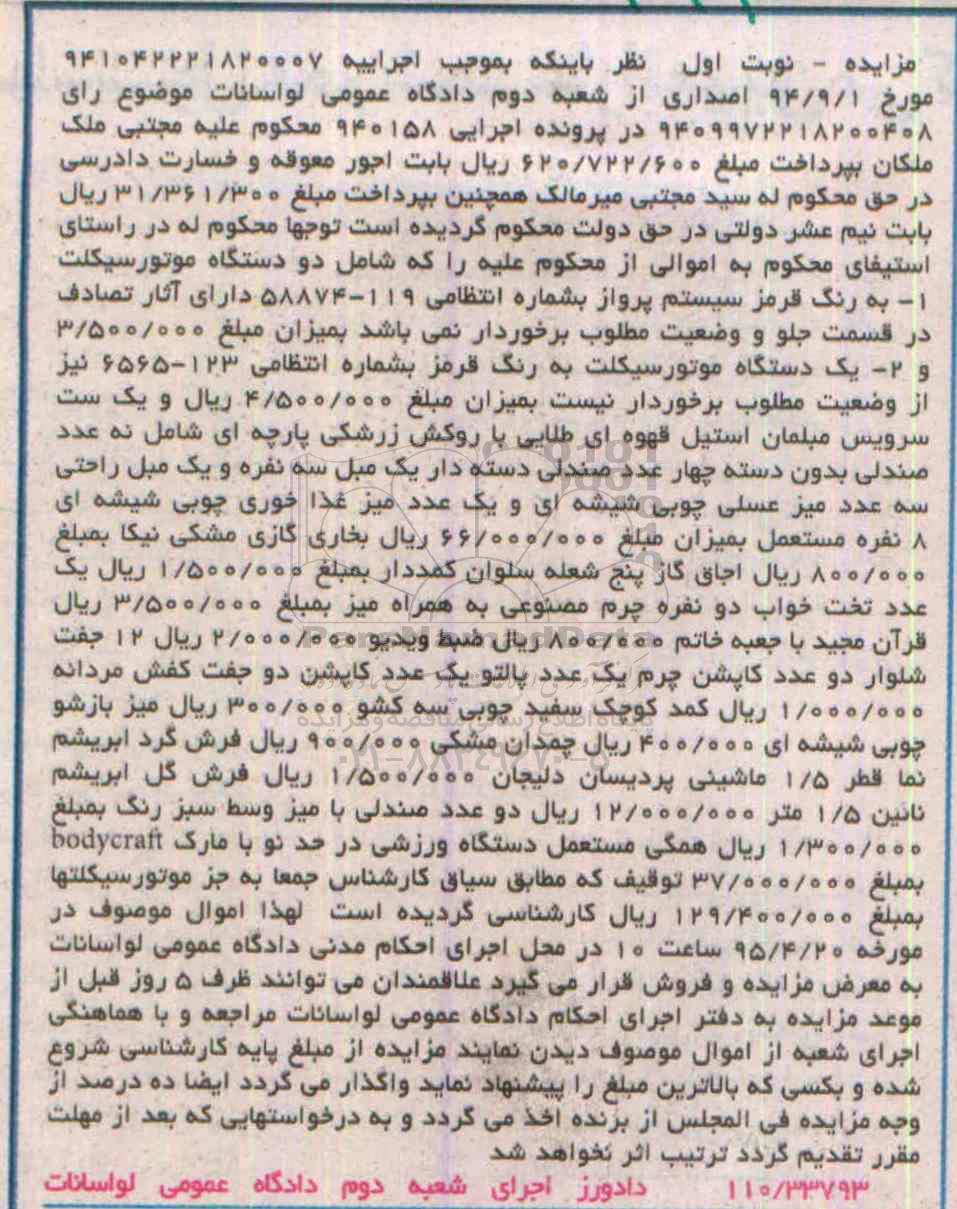 مزایده - نوبت اول نظر باینکه بموجب اجراییه ۹۴۱۰۴۲۲۲۱۸۲۰۰۰۰۷
مورخ ۹۴/۹/۱ اصداری از شعبه دوم دادگاه عمومی لواسانات موضوع رای
۹۴۰۹۹۷۲۲۱۸۲۰۰۴۰۸ در پرونده اجرایی ۹۴۰۱۵۸ محکوم علیه مجتبی ملک
ملکان بپرداخت مبلغ ۶۲۰/۷۲۲/۶۰۰ ریال بابت اجور معوقه و خسارت دادرسی
در حق محکوم له سید مجتبی میرمالک همچنین بپرداخت مبلغ ۳۱/۳۶۱/۳۰۰ ریال
بابت نیم عشر دولتی در حق دولت محکوم گردیده است توجها محکوم له در راستای
استیفای محکوم به اموالی از محکوم علیه را که شامل دو دستگاه موتورسیکلت
۱- به رنگ قرمز سیستم پرواز بشماره انتظامی ۱۱۹-۵۸۸۷۴ دارای آثار تصادف
در قسمت جلو و وضعیت مطلوب برخوردار نمی باشد بمیزان مبلغ ۳/۵۰۰/۰۰۰
و ۲- یک دستگاه موتورسیکلت به رنگ قرمز بشماره انتظامی ۱۲۳-۶۵۶۵ نیز
از وضعیت مطلوب برخوردار نیست بمیزان مبلغ ۴/۵۰۰/۰۰۰ ریال و یک ست
سرویس مبلمان استیل قهوه ای طلایی با روکش زرشکی پارچه ای شامل نه عدد
صندلی بدون دسته چهار عدد صندلی دسته دار یک مبل سه نفره و یک مبل راحتی
سه عدد میز عسلی چوبی شیشه ای و یک عدد میز غذا خوری چوبی شیشه ای
۸ نفره مستعمل بمیزان مبلغ ۶۶/۰۰۰/۰۰۰ ریال بخاری گازی مشکی نیکا بمبلغ
۸۰۰/۰۰۰ ریال اجاق گاز پنج شعله سلوان کمددار بمبلغ ۱/۵۰۰/۰۰۰ ریال یک
عدد تخت خواب دو نفره چرم مصنوعی به همراه میز بمبلغ ۳/۵۰۰/۰۰۰ ریال
قرآن مجید با جعبه خاتم ۸۰۰/۰۰۰ ریال ضبط ویدیو ۲/۰۰۰/۰۰۰ ریال ۱۲ جفت
شلوار دو عدد کاپشن چرم یک عدد پالتو یک عدد کاپشن دو جفت کفش مردانه
۱/۰۰۰/۰۰۰ ریال کمد کوچک سفید چوبی سه کشو ۳۰۰/۰۰۰ ریال میز بازشو
چوبی شیشه ای ۴۰۰/۰۰۰ ریال چمدان مشکی ۹۰۰/۰۰۰ ریال فرش گرد ابریشم
نما قطر ۱/۵ ماشینی پردیسان دلیجان ۱/۵۰۰/۰۰۰ ریال فرش گل ابریشم
نائین ۱/۵ متر ۱۲/۰۰۰/۰۰۰ ریال دو عدد صندلی با میز وسط سبز رنگ بمبلغ
۱/۳۰۰/۰۰۰ ریال همگی مستعمل دستگاه ورزشی در حد نو با مارک bodycraft
بمبلغ ۳۷/۰۰۰/۰۰۰ توقیف که مطابق سیاق کارشناس جمعا به جز موتورسیکلتها
بمبلغ ۱۲۹/۴۰۰/۰۰۰ ریال کارشناسی گردیده است لهذا اموال موصوف در
مورخه ۹۵/۴/۲۰ ساعت ۱۰ در محل اجرای احکام مدنی دادگاه عمومی لواسانات
به معرض مزایده و فروش قرار می گیرد علاقمندان می توانند ظرف ۵ روز قبل از
موعد مزایده به دفتر اجرای احکام دادگاه عمومی لواسانات مراجعه و با هماهنگی
اجرای شعبه از اموال موصوف دیدن نمایند مزایده از مبلغ پایه کارشناسی شروع
شده و بکسی که بالاترین مبلغ را پیشنهاد نماید واگذار می گردد ایضا ده درصد از
وجه مزایده فی المجلس از برنده اخذ می گردد و به درخواستهایی که بعد از مهلت
مقرر تقدیم گردد ترتیب اثر نخواهد شد
۱۱۰/۳۳۷۹۳ دادورز اجرای شعبه دوم دادگاه عمومی لواسانات